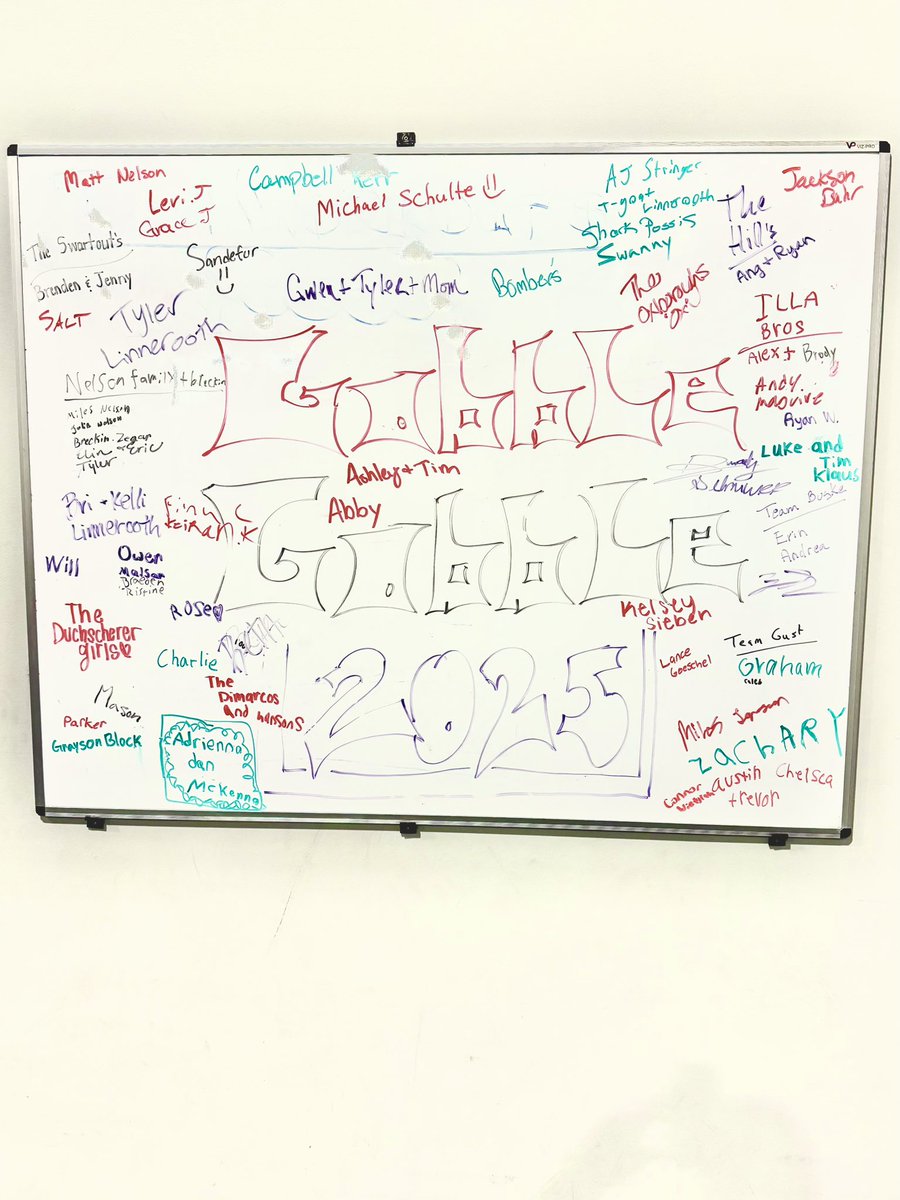 VIZ-PRO
Matt Nelson
Levi J
Grace J
Campbell Kerr
Michael Schulte
AJ Stringer
T-goat Linnerooth
Shark Possis
Swanny
The
Hill's
Ang + Ryan
Jackson
Bahr
The Swartout's
Brenden & Jenny
SALT
Sandefur
Gwen + Tyler + Mom
Bombers
The
Tyler
Linnerooth
ILLA
Bros
Alex + Brody
Andy
Maguire
Ryan W.
Nelson family + breckin
Miles Nelson
Julia Nelson
Breckin Zegar
Eric
Tyler
GobbLe
Ashley + Tim
Abby
GobbLe
2025
Luke and
Tim
Klaus
Team Buske
Erin
Andrea
Bri + Kelli
Linnerooth
Finn K
Keiran K
Will
Owen
Malsam
Braeden
Ristine
Rose
The
Duchscherer
girls
Charlie
The
Dimarcos
and hansons
Mason
Parker
Grayson Block
Adrienna
dan
McKenna
Kelsey
Sieben
Lance
Goeschel
Team Gust
Graham
caleb
Miles
ZACHARY
Connor
austin
Chelsea
trevor